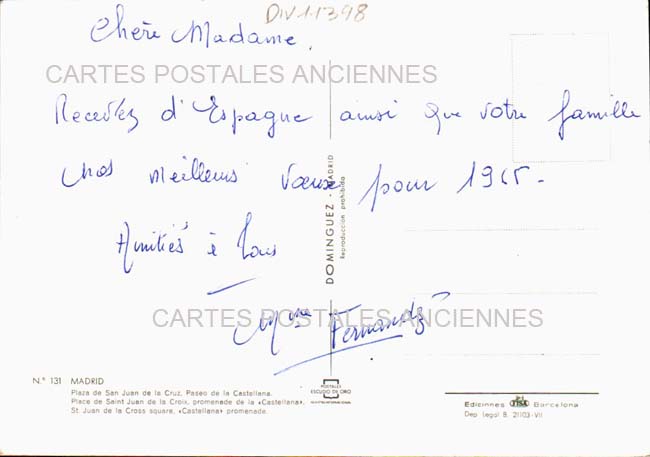 DIV11398
Chère Madame.
CARTES POSTALES ANCIENNES
Recevez d'Espagne ainsi que votre famille
nos meilleurs vœux pour 1965 -
Amitiés à tous
CARTES POSTALES ANCIENNES
Mme Fernandez
DOMINGUEZ - MADRID
Reproducción prohibida
N.º 131 MADRID
Plaza de San Juan de la Cruz, Paseo de la Castellana.
Place de Saint Juan de la Croix, promenade de la «Castellana».
St. Juan de la Cross square, «Castellana» promenade.
POSTALES
ESCUDO DE ORO
Ediciones FISA Barcelona
Dep. Legal B. 21103-VII